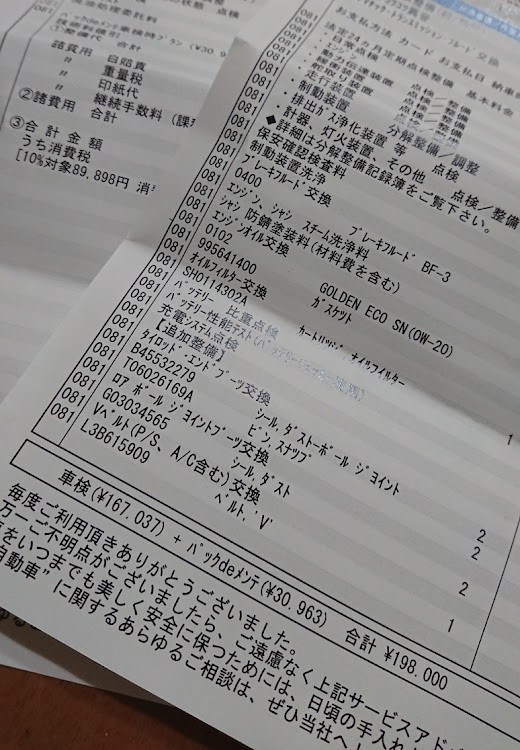 パックdeメンテ車検時プラン (¥30.9
①整備代 合計
諸費用 自賠責
〃 重量税
〃 印紙代
継続手数料 (課
②諸費用 合計
③合計金額
うち消費税
[10%対象89,898円 消
お支払方法 カード お支払日 納車
法定24ヵ月定期点検整備 基本料金
081 動力伝達装置 点検／整備
081 走行装置 点検／整備
081 制動装置 分解整備／調整
081 ・排出ガス浄化装置 等 点検
081 ・計器、灯火装置、その他 点検／整備
◆詳細は分解整備記録簿をご覧下さい。
081 保安確認検査料
081 制動装置洗浄
081 ブレーキフルード交換
081 0400 ブレーキフルード BF-3
081 エンジン、シャシ スチーム洗浄料
081 シャシ 防錆塗装料(材料費を含む)
081 エンジンオイル交換
081 0102 GOLDEN ECO SN(0W-20)
081 995641400 ガスケット
081 オイルフィルター交換
081 SH0114302A カートリッジ、オイルフィルター 1
081 バッテリー 比重点検
081 バッテリー性能テスト
081 充電システム点検
【追加整備】
081 タイロッド・エンドブーツ交換
081 B45532279 シール,ダスト-ボール ジョイント 2
081 T06026169A ピン,スナップ 2
081 ロア ボール ジョイントブーツ交換
081 G03034565 シール,ダスト 2
081 Vベルト(P/S、A/C含む)交換
081 L3B615909 ベルト,'V' 1
車検(¥167,037) + パックdeメンテ(¥30,963) 合計 ¥198,000
毎度ご利用頂きありがとうございました。
万一ご不明点がございましたら、ご遠慮なく上記サービスアド
をいつまでも美しく安全に保つためには、日頃の手入れ
自動車”に関するあらゆるご相談は、ぜひ当社へ